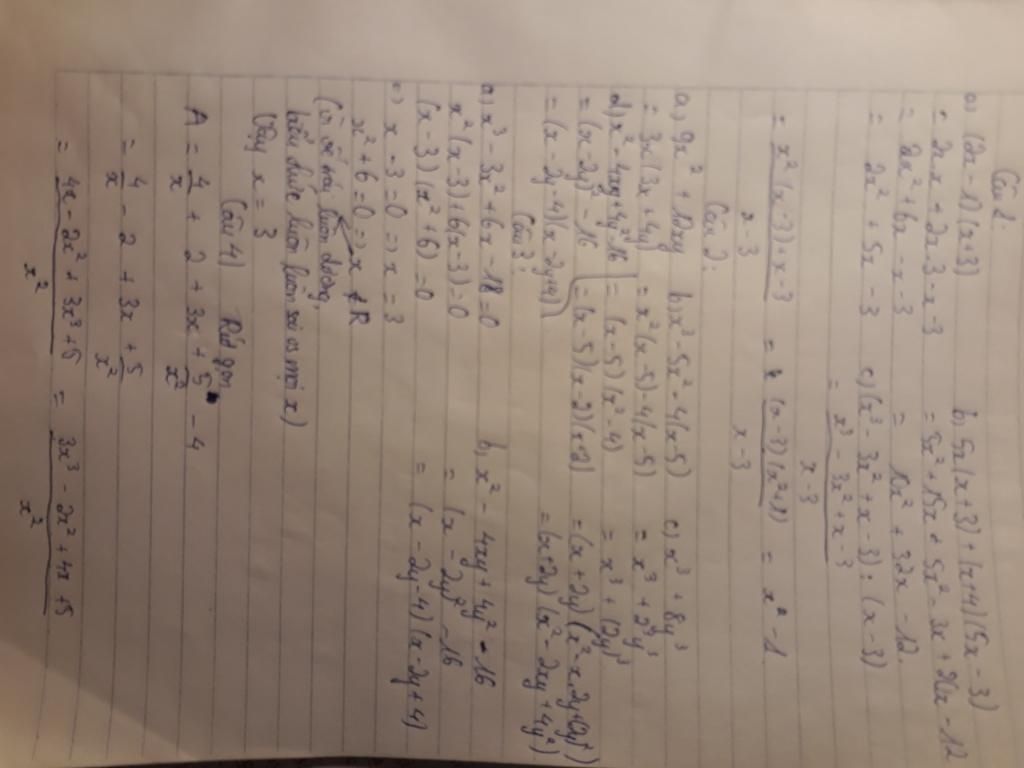 Câu 1:
a) (2x - 1)(x + 3)
= 2x.x + 2x.3 - x - 3
= 2x² + 6x - x - 3
= 2x² + 5x - 3
b, 5x(x + 3) + (x + 4)(5x - 3)
= 5x² + 15x + 5x² - 3x + 20x - 12
= 10x² + 32x - 12.
c) (x³ - 3x² + x - 3) : (x - 3)
= \frac{x³ - 3x² + x - 3}{x - 3}
= \frac{x²(x - 3) + x - 3}{x - 3} = \frac{(x - 3)(x² + 1)}{x - 3} = x² - 1
Câu 2:
a, 9x² + 12xy
= 3x(3x + 4y)
b, x³ - 5x² - 4(x - 5)
= x²(x - 5) - 4(x - 5)
= (x - 5)(x² - 4)
= (x - 5)(x - 2)(x + 2)
c) x³ + 8y³
= x³ + 2³y³
= x³ + (2y)³
= (x + 2y)(x² - x.2y + (2y)²)
= (x + 2y)(x² - 2xy + 4y²)
d, x² - 4xy + 4y² - 16
= (x - 2y)² - 16
= (x - 2y - 4)(x - 2y + 4)
Câu 3:
a, x³ - 3x² + 6x - 18 = 0
x²(x - 3) + 6(x - 3) = 0
(x - 3)(x² + 6) = 0
=) x - 3 = 0 => x = 3
x² + 6 = 0 => x ∉ R
(vì vế trái luôn dương,
biểu thức luôn luôn sai với mọi x)
Vậy x = 3
b, x² - 4xy + 4y² - 16
= (x - 2y)² - 16
= (x - 2y - 4)(x - 2y + 4)
Câu 4) Rút gọn
A = \frac{4}{x} + 2 + 3x + \frac{5}{x²} - 4
= \frac{4}{x} - 2 + 3x + \frac{5}{x²}
= \frac{4x - 2x² + 3x³ + 5}{x²} = \frac{3x³ - 2x² + 4x + 5}{x²}